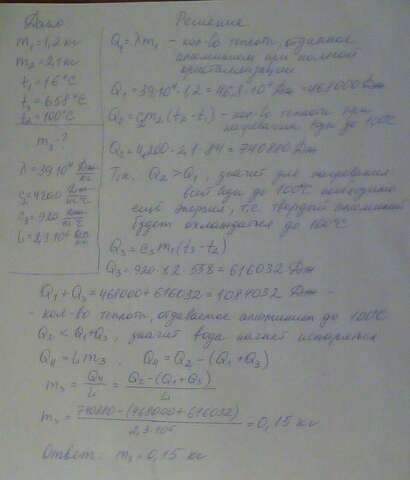 Дано
m₁=1,2 кг
m₂=2,1 кг
t₁=16°C
t₃=658°C
t₂=100°C
m₃-?
λ=39·10⁴ Дж/кг
c₂=4200 Дж/кг°C
c₃=920 Дж/кг°C
L=2,3·10⁶ Дж/кг
Решение
Q₁=λm₁ - кол-во теплоты, отданное
алюминием при полной
кристаллизации
Q₁=39·10⁴·1,2=46,8·10⁴=468000 Дж
Q₂=c₂m₂(t₂-t₁) - кол-во теплоты при
нагревании воды до 100°C
Q₂=4200·2,1·84=740880 Дж
Т.к. Q₂>Q₁, значит для нагревания
всей воды до 100°C необходимо
ещё энергия, т.е. твёрдый алюминий
будет охлаждаться до 100°C
Q₃=c₃m₁(t₃-t₂)
Q₃=920·1,2·558=616032 Дж
Q₁+Q₃=468000+616032=1084032 Дж -
- кол-во теплоты, отдаваемое алюминием до 100°C
Q₂<Q₁+Q₃, значит вода начнёт испаряться
Q₄=Lm₃, Q₄=Q₂-(Q₁+Q₃)
m₃=Q₄/L=Q₂-(Q₁+Q₃)/L
m₃=740880-(468000+616032)/2,3·10⁶=0,15 кг
Ответ: m₃=0,15 кг